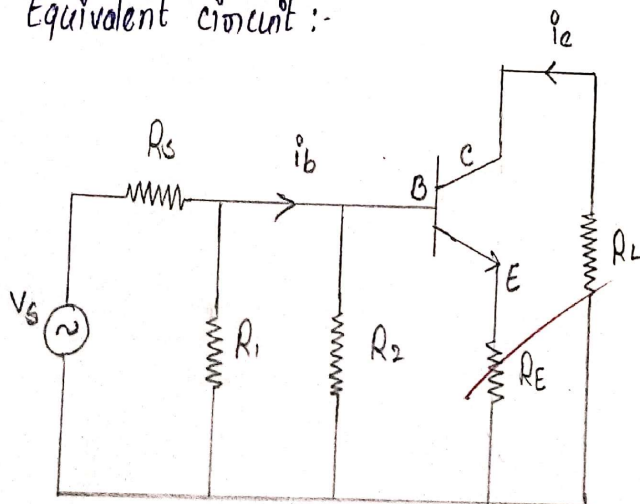 Equivalent circuit :-
ic
Rs
ib
C
B
RL
E
Vs
~
R1
R2
RE